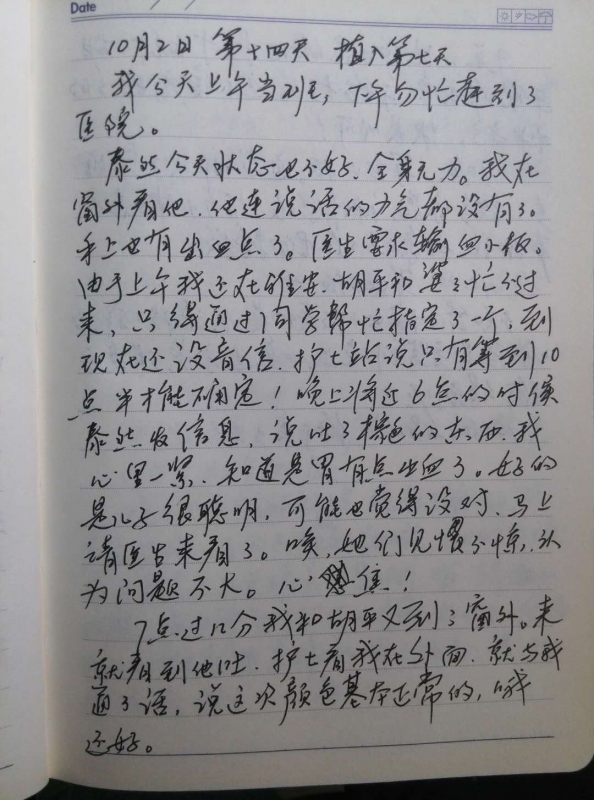 Date
10月2日 第十四天 植入第七天
我今天上午当班, 下午匆忙赶到了
医院。
泰然今天状态也不好、全身无力。我在
窗外看他、他连说话的力气都没有了。
手上也有出血点了。医生要求输血小板。
由于上午我还在雅安、胡平和婆婆忙不过
来, 只得通过同学帮忙指定了一个, 到
现在还没音信、护士站说只有等到10
点半才能确定! 晚上将近6点的时候
泰然发信息, 说吐了棕色的东西、我
心里一紧、知道是胃有点出血了。好的
是儿子很聪明, 可能也觉得没对、马上
请医生来看了。唉, 她们见惯不惊, 认
为问题不大。心焦!
7点过几分我和胡平又到了窗外。来
就看到他吐、护士看我在外面、就与我
通了话, 说这次颜色基本正常的, 哦
还好。